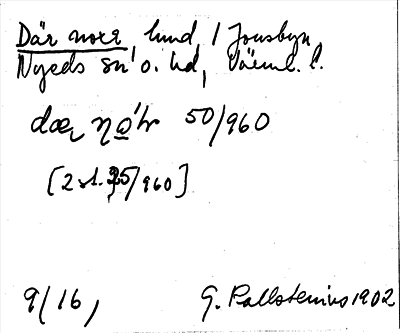 Där norr, lund, / Jonsbyn
Nyeds sn o. hd, Värml. l.
dær no'r 50/960
[2 st. 35/960]
9/16, G. Kallstenius 1902